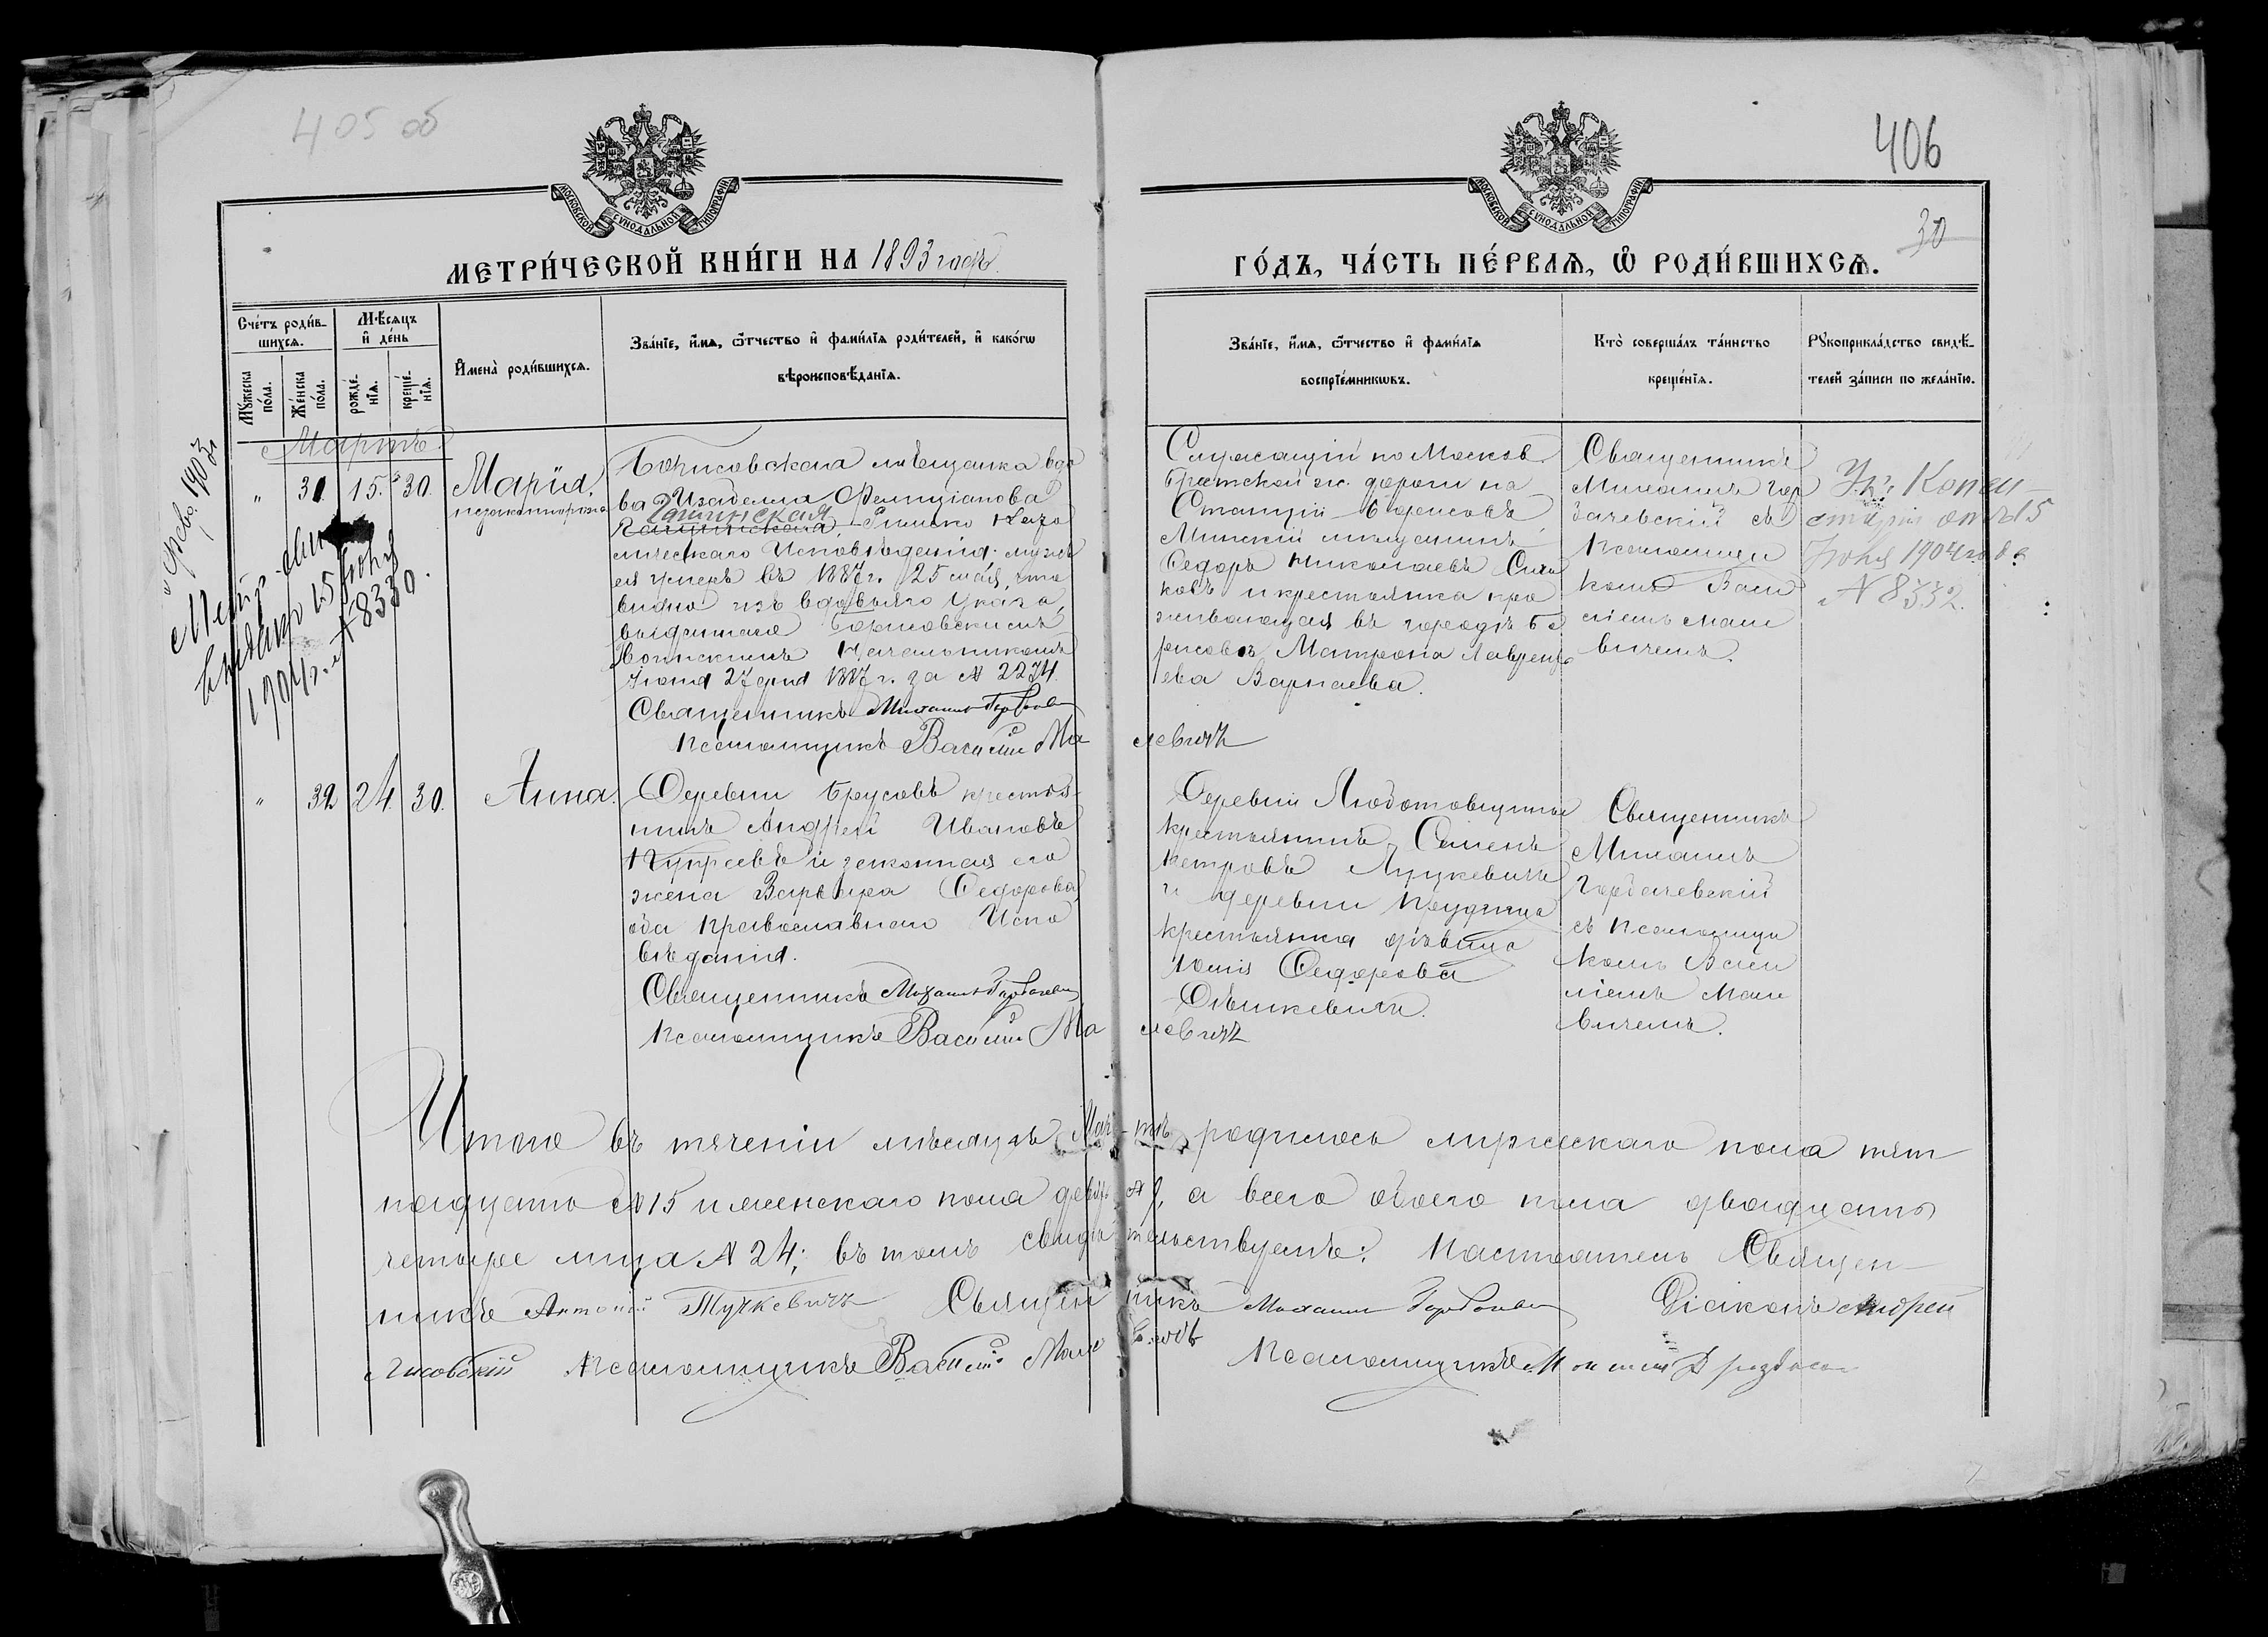 405 об
406
30
МОСКОВСКОЙ СѴНОДАЛЬНОЙ ТИПОГРАФІИ
МОСКОВСКОЙ СѴНОДАЛЬНОЙ ТИПОГРАФІИ
МЕТРИ́ЧЕСКОЙ КНИ́ГИ НА 1893 годъ.
ГО́ДЪ, ЧА́СТЬ ПЕ́РВАѦ, Ѡ РОДИ́ВШИХСѦ.
Сче́тъ роди́в-
шихсѧ.
Мѣ́сѧцъ
и҆ де́нь
Мꙋ́жеска
по́ла.
Же́нска
по́ла.
рожде́-
нїѧ.
креще́-
нїѧ.
И҆мена̀ роди́вшихсѧ.
Зва́нїе, и҆́мѧ, ѻ҆́тчество и҆ фами́лїѧ роди́телей, и҆ како́гѡ
вѣроисповѣ́данїѧ.
Зва́нїе, и҆́мѧ, ѻ҆́тчество и҆ фами́лїѧ
воспрїе́мникѡвъ.
Кто̀ соверша́лъ та́инство
креще́нїѧ.
Рꙋкоприкла́дство свидѣ́-
телей за́писи по жела́нїю.
Мартъ.
" 31 15. 30. Марія,
незаконнорож
Борисовская мѣщанка вдо
ва Изабелла Фелиціанова
Римско Като
лическаго Исповѣданія. мужъ
ея умеръ въ 1887 г. 25 мая, что
видно изъ вдовьяго указа,
выданнаго Борисовскимъ
Воинскимъ Начальникомъ
27 дня 1887 г. за № 2274.
Священникъ Михаилъ Горбачевскій
Псаломщикъ Василій Ма
левичъ
Служащій по Москов.
Брестской ж. дороги на
Станціи Борисовъ
Минскій мещанинъ
Ѳедоръ Николаевъ
ковъ и крестьянка про
живающая въ городѣ Бо
рисовѣ Матрона Лаврентье
ева Варнаева.
Священникъ
Михаилъ Гор
бачевскій съ
Псаломщи
комъ Васи
ліемъ Мале
вичемъ.
Ук. Консисторіи отъ 15
Іюня 1904 года
№ 8332.
февр. 1903 г
Метр.
выдано 15 Іюня
1904 г. № 8330.
" 32 24 30. Анна.
Деревни Брусовъ крестья-
нинъ Андрей Ивановъ
Купреевъ и законная его
жена Варвара Ѳедорова,
оба Православнаго Испо
вѣданія.
Священникъ Михаилъ Горбачевскій
Псаломщикъ Василій Ма
левичъ
Деревни
крестьянинъ Семенъ
Петровъ Луцкевичъ
и деревни Прудища
крестьянка дѣвица
Юлія Ѳедорова
Олѣшкевичъ.
Священникъ
Михаилъ
Горбачевскій
съ псаломщи
комъ Васи
ліемъ Мале
вичемъ.
Итого въ теченіи мѣсяцъ Мартъ родилось мужескаго пола пят-
надцать № 15 и женскаго пола девять № 9, а всего обоего пола двадцать
четыре лица № 24; въ томъ свидѣтельствуемъ: Настоятель Священ-
никъ Антоній Тучкевичъ Священникъ Михаилъ Горбачевскій Діаконъ Андрей
Лисовскій Псаломщикъ Василій Малевичъ Псаломщикъ